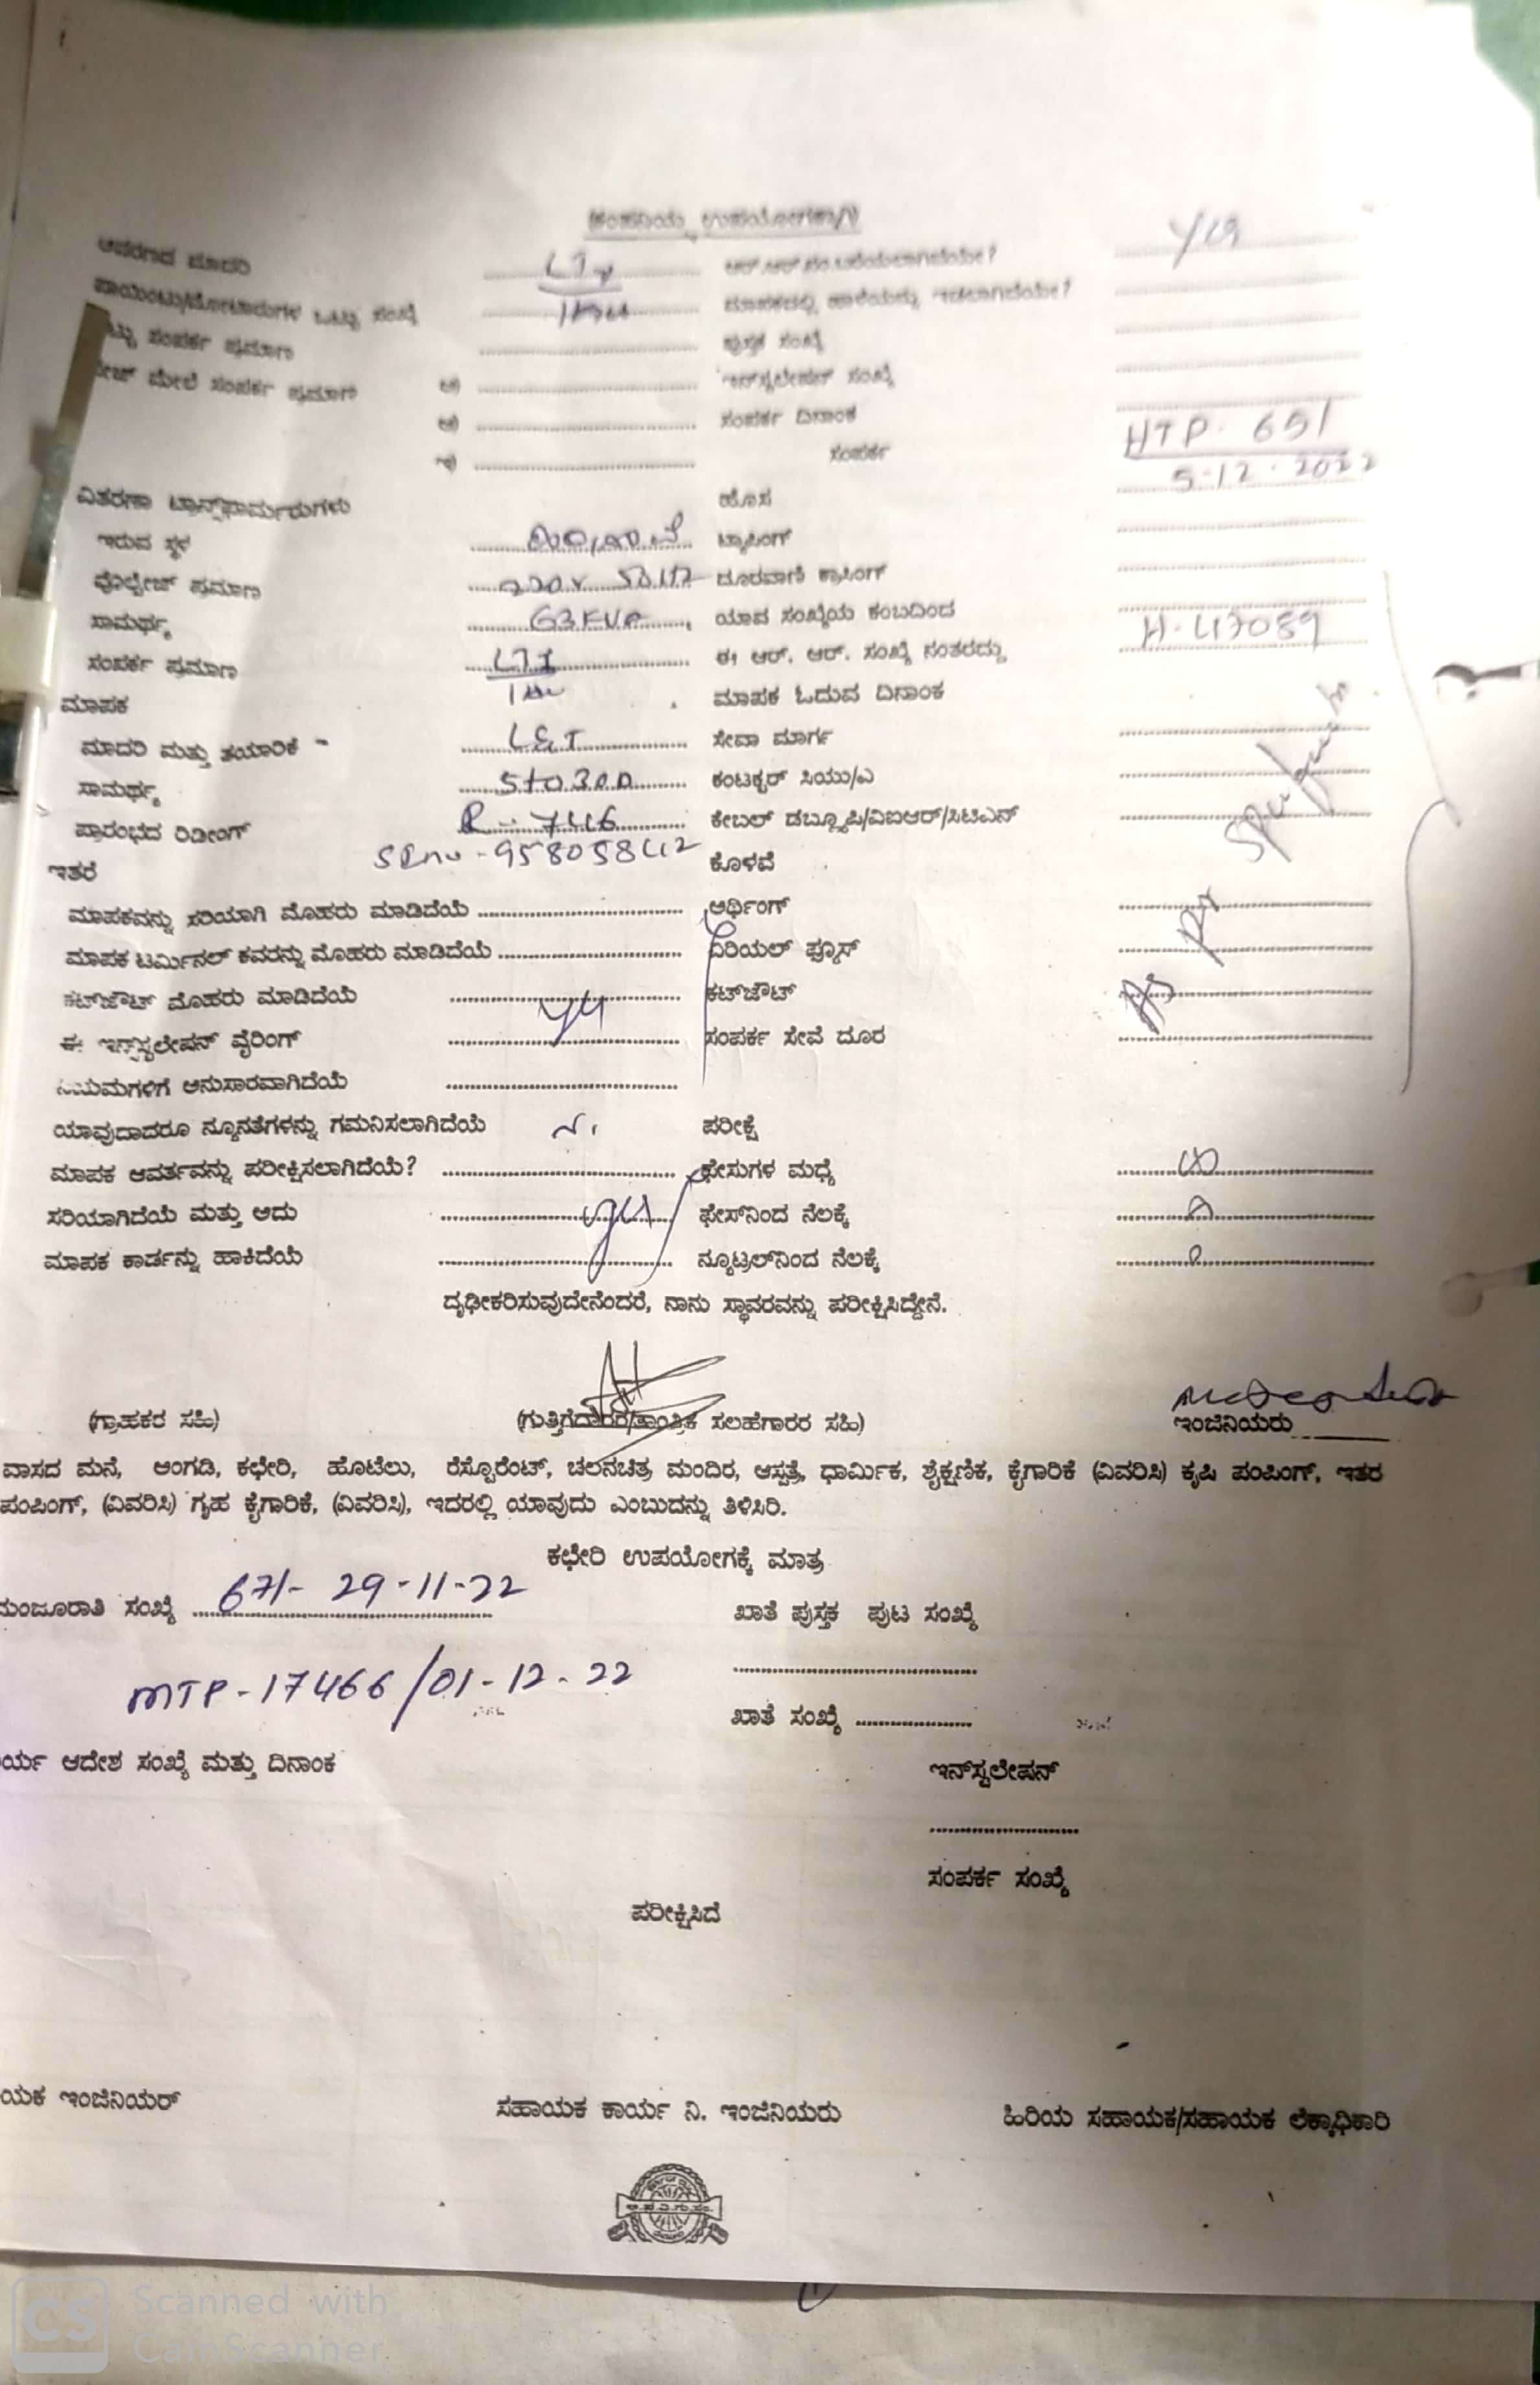 (ಕಂಪನಿಯ ಉಪಯೋಗಕ್ಕಾಗಿ)
ಆವರಣದ ಮಾದರಿ ಆರ್.ಆರ್.ನಂ.ಬರೆಯಲಾಗಿದೆಯೇ?
ಪಾಯಿಂಟು/ಮೋಟಾರುಗಳ ಒಟ್ಟು ಸಂಖ್ಯೆ ಮಾಪಕದಲ್ಲಿ ಹಾಳೆಯನ್ನು ಇಡಲಾಗಿದೆಯೇ?
ಸಂಪರ್ಕ ಪ್ರಮಾಣ ಪುಸ್ತಕ ಸಂಖ್ಯೆ
ಮೇಲೆ ಸಂಪರ್ಕ ಪ್ರಮಾಣ ಅ) ಇನ್‌ಸ್ಟಲೇಷನ್ ಸಂಖ್ಯೆ
ಆ) ಸಂಪರ್ಕ ದಿನಾಂಕ HTP. 651
ಇ) ಸಂಪರ್ಕ 5-12-2022
ವಿತರಣಾ ಟ್ರಾನ್ಸ್‌ಫಾರ್ಮರುಗಳು ಹೊಸ
ಇರುವ ಸ್ಥಳ ಟ್ಯಾಪಿಂಗ್
ವೊಲ್ಟೇಜ್ ಪ್ರಮಾಣ 220V 50HZ ದೂರವಾಣಿ ಕ್ರಾಸಿಂಗ್
ಸಾಮರ್ಥ್ಯ 63KVA ಯಾವ ಸಂಖ್ಯೆಯ ಕಂಬದಿಂದ
ಸಂಪರ್ಕ ಪ್ರಮಾಣ ಈ ಆರ್. ಆರ್. ಸಂಖ್ಯೆ ನಂತರದ್ದು H-47089
ಮಾಪಕ ಮಾಪಕ ಓದುವ ದಿನಾಂಕ
ಮಾದರಿ ಮತ್ತು ತಯಾರಿಕೆ - L&T ಸೇವಾ ಮಾರ್ಗ
ಸಾಮರ್ಥ್ಯ 5to30A ಕಂಟಕ್ಟರ್ ಸಿಯು/ಎ
ಪ್ರಾರಂಭದ ರಿಡೀಂಗ್ R- 7446 ಕೇಬಲ್ ಡಬ್ಲ್ಯೂಪಿ/ವಿಐಆರ್/ಸಿಟಿಎಸ್
SLno - 958058442
ಇತರೆ ಕೊಳವೆ
ಮಾಪಕವನ್ನು ಸರಿಯಾಗಿ ಮೊಹರು ಮಾಡಿದೆಯೆ ಅರ್ಥಿಂಗ್
ಮಾಪಕ ಟರ್ಮಿನಲ್ ಕವರನ್ನು ಮೊಹರು ಮಾಡಿದೆಯೆ ಏರಿಯಲ್ ಫ್ಯೂಸ್
ಕಟ್‌ಔಟ್ ಮೊಹರು ಮಾಡಿದೆಯೆ ಕಟ್‌ಔಟ್
ಈ ಇನ್ಸ್ಟಲೇಷನ್ ವೈರಿಂಗ್ ಸಂಪರ್ಕ ಸೇವೆ ದೂರ
ನಿಯಮಗಳಿಗೆ ಅನುಸಾರವಾಗಿದೆಯೆ
ಯಾವುದಾದರೂ ನ್ಯೂನತೆಗಳನ್ನು ಗಮನಿಸಲಾಗಿದೆಯೆ ಪರೀಕ್ಷೆ
ಮಾಪಕ ಆವರ್ತವನ್ನು ಪರೀಕ್ಷಿಸಲಾಗಿದೆಯೆ? ಫೇಸುಗಳ ಮಧ್ಯೆ
ಸರಿಯಾಗಿದೆಯೆ ಮತ್ತು ಅದು ಫೇಸ್‌ನಿಂದ ನೆಲಕ್ಕೆ
ಮಾಪಕ ಕಾರ್ಡನ್ನು ಹಾಕಿದೆಯೆ ನ್ಯೂಟ್ರಲ್‌ನಿಂದ ನೆಲಕ್ಕೆ
ದೃಢೀಕರಿಸುವುದೇನೆಂದರೆ, ನಾನು ಸ್ಥಾವರವನ್ನು ಪರೀಕ್ಷಿಸಿದ್ದೇನೆ.
(ಗ್ರಾಹಕರ ಸಹಿ) (ಗುತ್ತಿಗೆದಾರರ/ತಾಂತ್ರಿಕ ಸಲಹೆಗಾರರ ಸಹಿ) ಇಂಜಿನಿಯರು
ವಾಸದ ಮನೆ, ಅಂಗಡಿ, ಕಛೇರಿ, ಹೊಟೆಲು, ರೆಸ್ಟೊರೆಂಟ್, ಚಲನಚಿತ್ರ ಮಂದಿರ, ಆಸ್ಪತ್ರೆ, ಧಾರ್ಮಿಕ, ಶೈಕ್ಷಣಿಕ, ಕೈಗಾರಿಕೆ (ವಿವರಿಸಿ) ಕೃಷಿ ಪಂಪಿಂಗ್, ಇತರ
ಪಂಪಿಂಗ್, (ವಿವರಿಸಿ) ಗೃಹ ಕೈಗಾರಿಕೆ, (ವಿವರಿಸಿ), ಇದರಲ್ಲಿ ಯಾವುದು ಎಂಬುದನ್ನು ತಿಳಿಸಿರಿ.
ಕಛೇರಿ ಉಪಯೋಗಕ್ಕೆ ಮಾತ್ರ
ಮಂಜೂರಾತಿ ಸಂಖ್ಯೆ 671- 29-11-22 ಖಾತೆ ಪುಸ್ತಕ ಪುಟ ಸಂಖ್ಯೆ
MTP-17466/01-12-22
ಖಾತೆ ಸಂಖ್ಯೆ
ರ್ಯ ಆದೇಶ ಸಂಖ್ಯೆ ಮತ್ತು ದಿನಾಂಕ ಇನ್‌ಸ್ಟಲೇಷನ್
ಸಂಪರ್ಕ ಸಂಖ್ಯೆ
ಪರೀಕ್ಷಿಸಿದೆ
ಯಕ ಇಂಜಿನಿಯರ್ ಸಹಾಯಕ ಕಾರ್ಯ ನಿ. ಇಂಜಿನಿಯರು ಹಿರಿಯ ಸಹಾಯಕ/ಸಹಾಯಕ ಲೆಕ್ಕಾಧಿಕಾರಿ
CS Scanned with
CamScanner